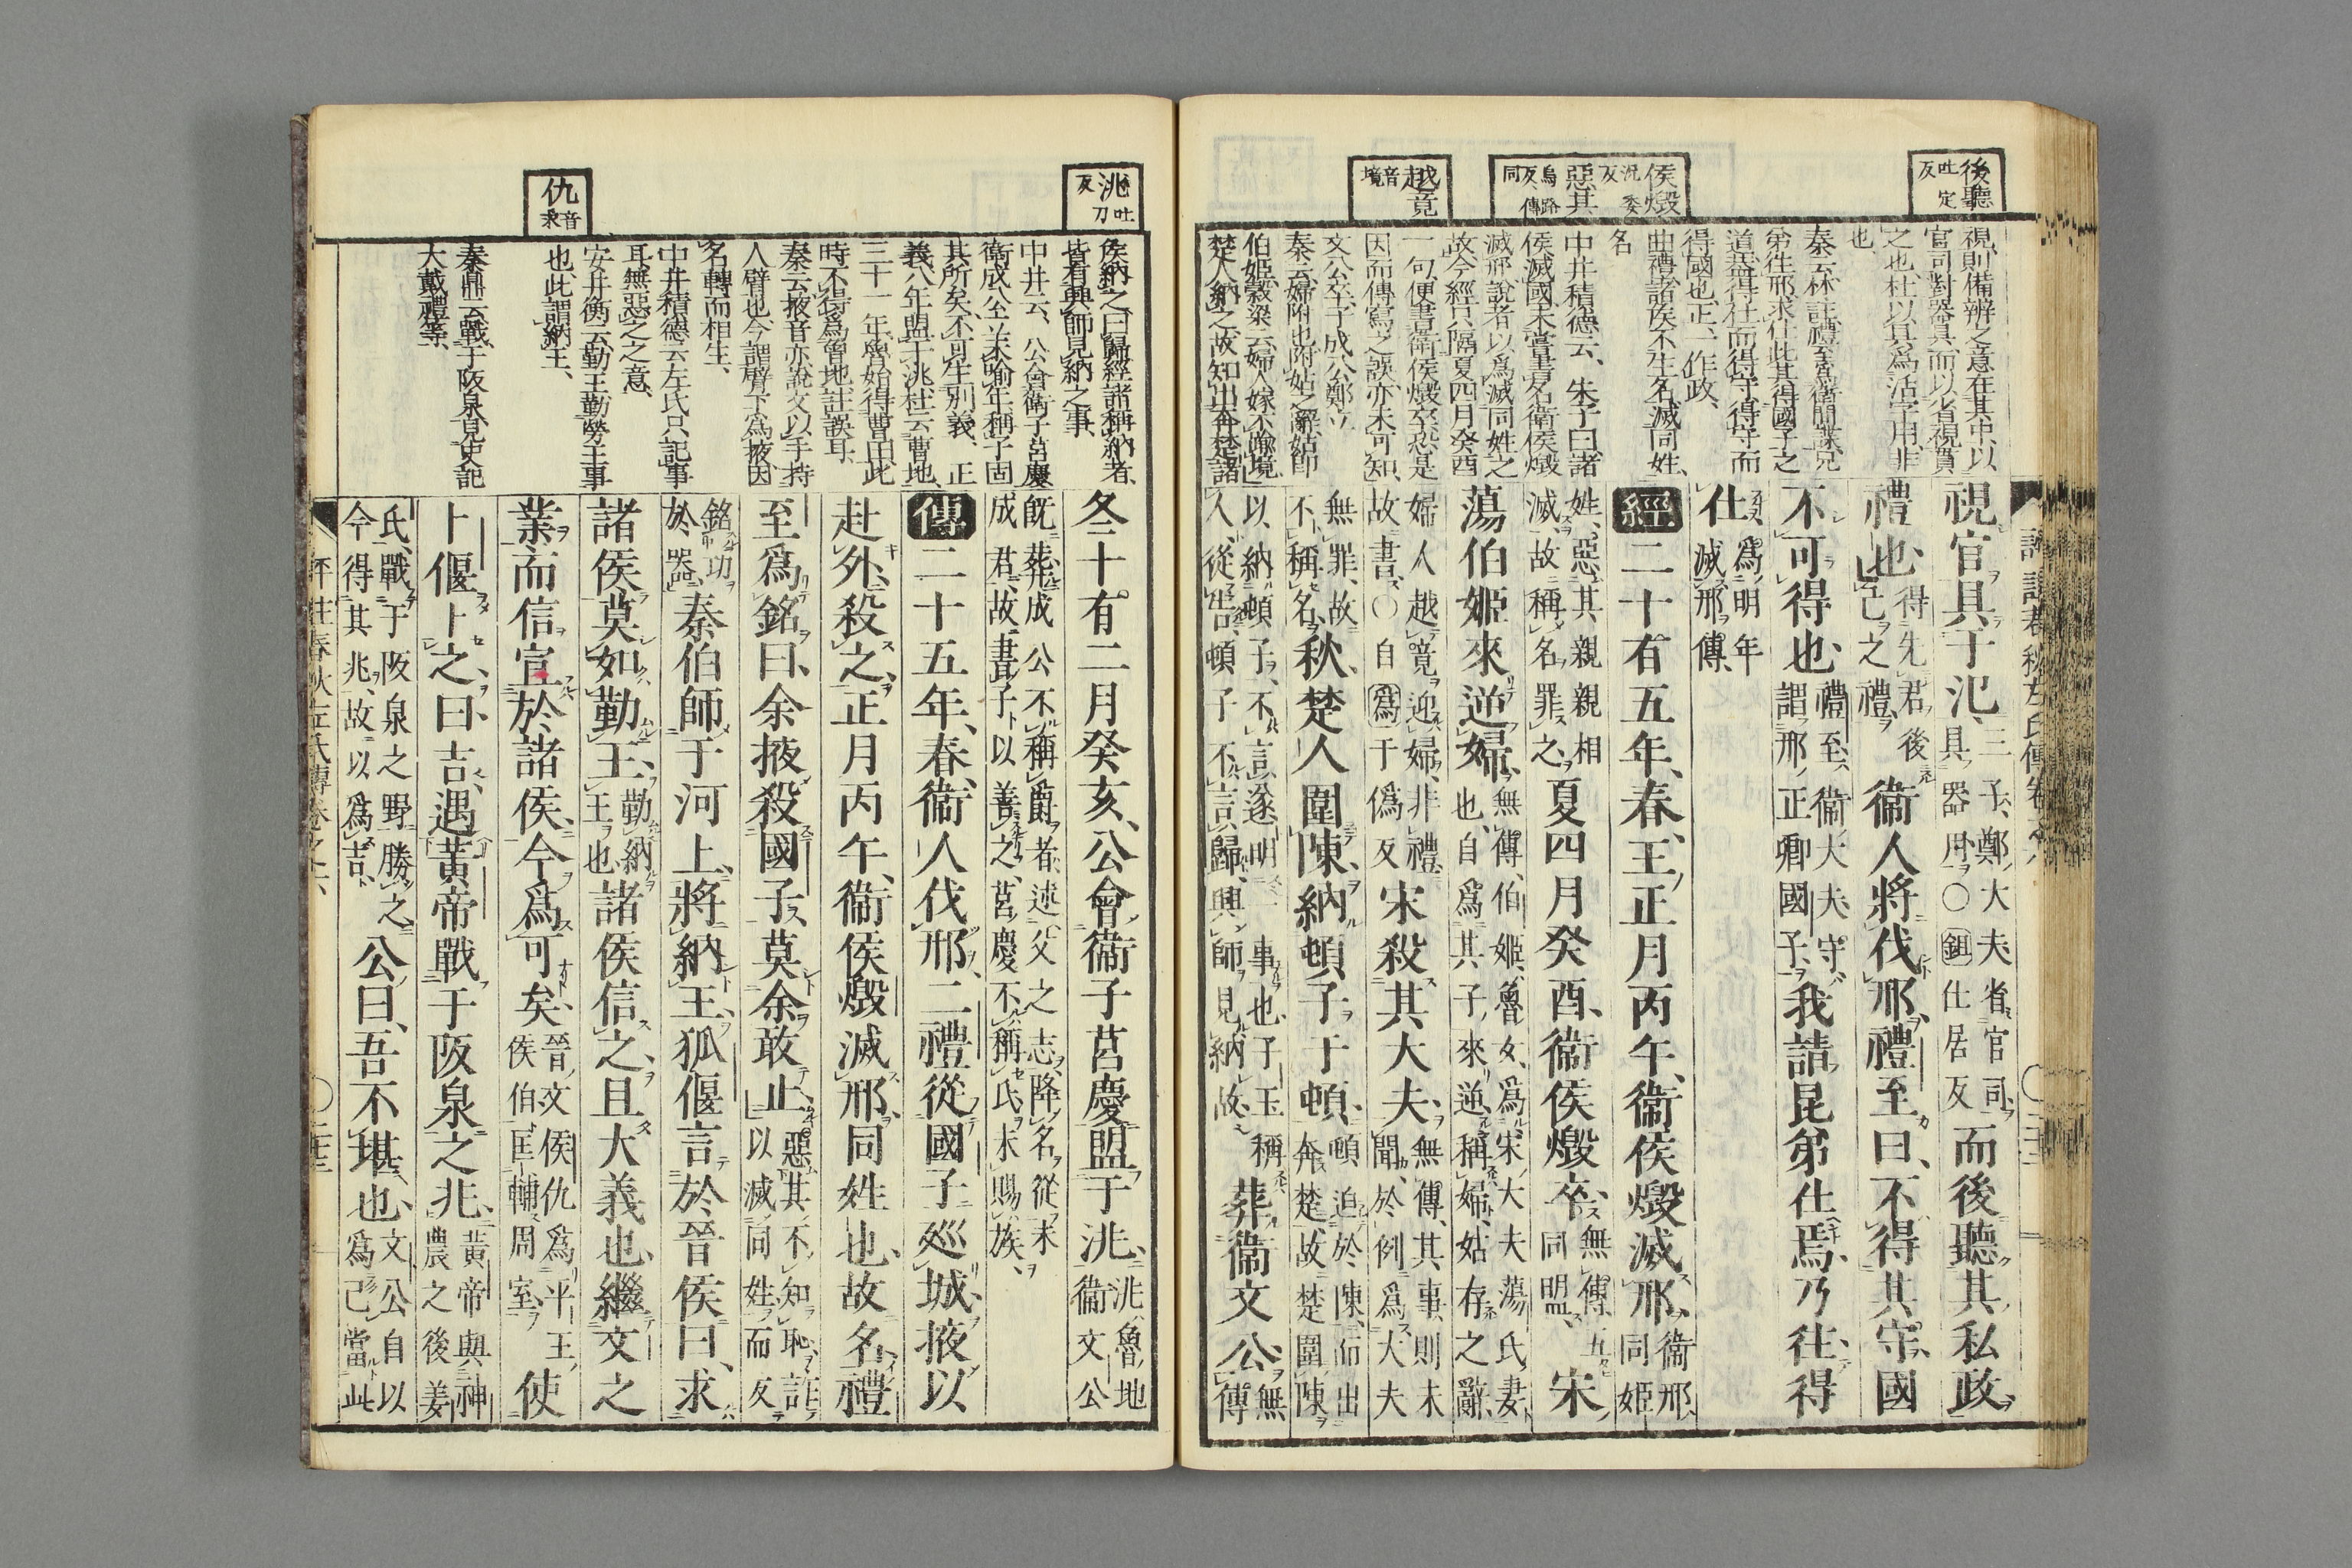 後聽 吐定反
侯燬 況委反
惡其 烏路反傳同
越竟 音境
視則備辨之意在其中、以
官司對器具、而以省視貫
之也、杜以具爲活字用非
也、
秦云林註禮至爲衛間諜兄
弟往邢求仕此其得國子之
道與得仕而得守得守而
得國也正一作政、
曲禮諸侯不生名滅同姓
名
中井積德云、朱子曰諸
侯滅國未嘗書名衛侯燬
滅邢說者以爲滅同姓之
故今經只隔夏四月癸酉
一句便書衛侯燬卒恐是
因而傳寫之誤亦未可知
文公卒子成公鄭立
秦云婦附也附姑之辭姑卽
伯姬穀梁云婦人嫁不踰境
楚人納之故知出奔楚諸
視官具于氾、三子、鄭大夫省官司、具器用○鉏仕居反而後聽其私政
禮也、得先君後己之禮衛人將伐邢禮至曰、不得其守國
不可得也、禮至、衛大夫、守謂邢正卿國子我請昆弟仕焉、乃往得
仕爲明年滅邢傳、
經二十有五年、春、王正月丙午、衛侯燬滅邢、衛邢同姬
姓、惡其親親相滅、故稱名罪之夏四月癸酉、衛侯燬卒、無傳、五同盟、宋
蕩伯姬來逆婦、無傳、伯姬、魯女、爲宋大夫蕩氏妻也、自爲其子來逆、稱婦姑存之辭
婦人越竟迎婦、非禮故書、○自爲于僞反宋殺其大夫、無傳、其事則未聞、於例爲大夫
無罪、故不稱名秋、楚人圍陳、納頓子于頓、頓迫於陳、而出奔楚、故楚圍陳
以納頓子、不言遂、明一事也、子玉稱人、從告、頓子不言歸、興師見納故、葬衛文公、無傳
洮 吐刀反
仇 音求
侯納之曰歸經諸稱納者、
皆有興師見納之事、
中井云、公會衛子莒慶
衛成公並未踰年稱子固
其所矣、不可生別義、正
義八年盟于洮杜云曹地、
三十一年魯始得曹田此
時不得爲魯地註誤耳、
秦云掖音亦說文以手持
人臂也今謂臂下爲掖因
名轉而相生、
中井積德云左氏只記事
耳無惡之之意、
安井衡云勤王勤勞王事
也、此謂納王、
秦鼎云戰于阪泉見史記
大戴禮等、
冬十有二月癸亥、公會衛子莒慶盟于洮、洮、魯地衛文公
旣葬成公不稱爵者、述父之志、降名從未成君、故書子以善之、莒慶不稱氏未賜族、
傳二十五年、春、衛人伐邢、二禮從國子巡城、掖以
赴外、殺之、正月丙午、衛侯燬滅邢、同姓也、故名禮
至爲銘曰、余掖殺國子、莫余敢止、惡其不知恥、詐以滅同姓而反
銘功於器、秦伯師于河上、將納王、狐偃言於晉侯曰、求
諸侯莫如勤王、勤納王也諸侯信之、且大義也、繼文之
業而信宣於諸侯、今爲可矣、晉文侯仇爲平王侯伯、匡輔周室使
卜偃卜之、曰、吉、遇黃帝戰于阪泉之兆、黃帝與神農之後姜
氏、戰于阪泉之野勝之、今得其兆、故以爲吉、公曰、吾不堪也、文公自以爲己當此